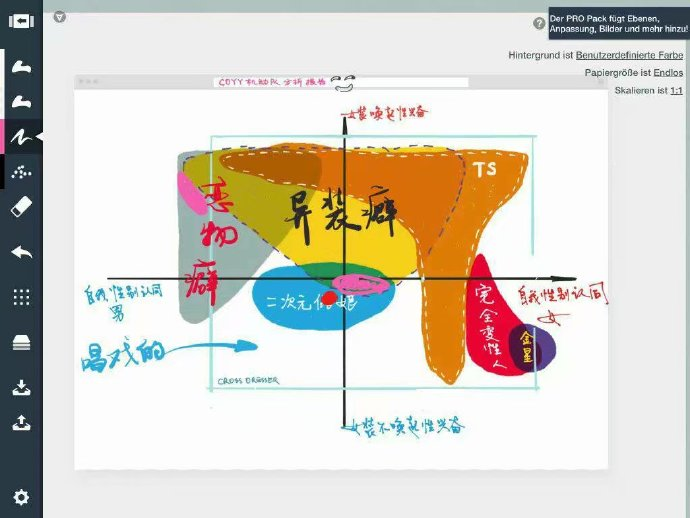 Der PRO Pack fügt Ebenen,
Anpassung, Bilder und mehr hinzu!
Hintergrund ist Benutzerdefinierte Farbe
Papiergröße ist Endlos
Skalieren ist 1:1
女装唤起性兴奋
TS
恋物癖
异装癖
自我性别认同
男
二次元伪娘
完全变性人
自我性别认同
女
金星
唱戏的
CROSS DRESSER
女装不唤起性兴奋